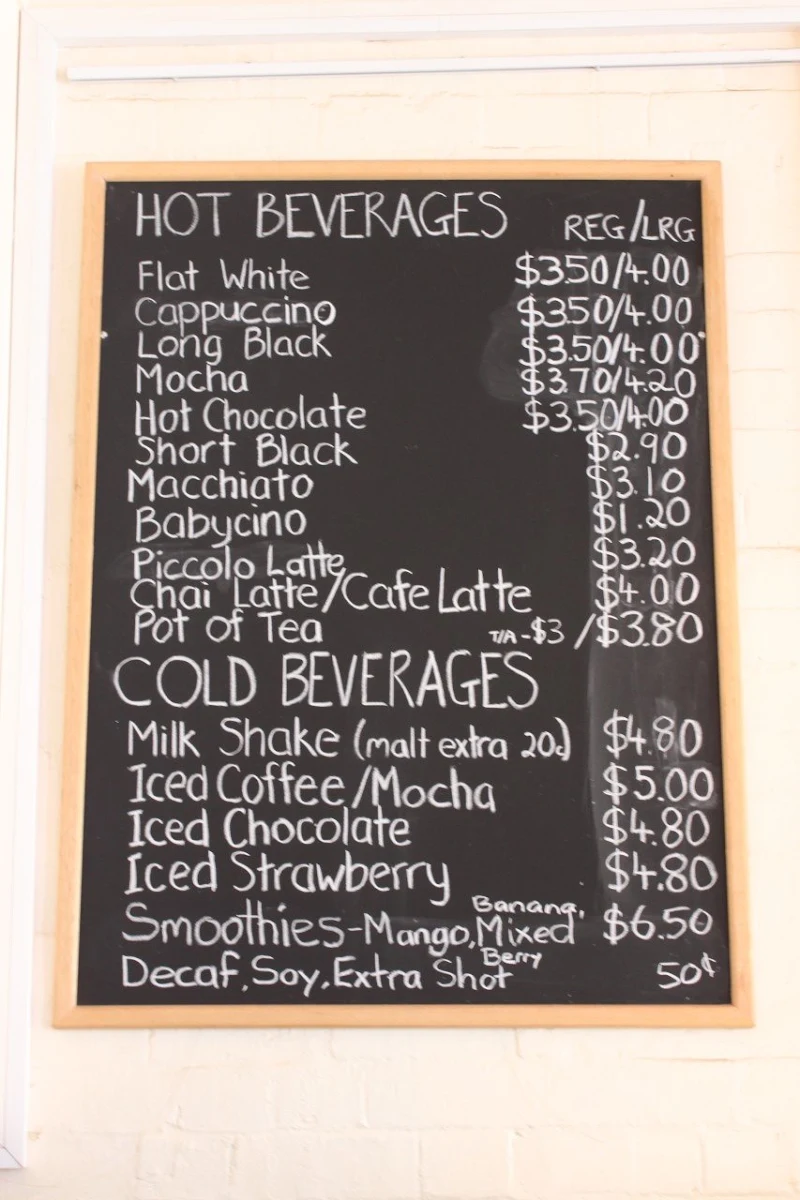 HOT BEVERAGES REG/LRG
Flat White $3.50/4.00
Cappuccino $3.50/4.00
Long Black $3.50/4.00
Mocha $3.70/4.20
Hot Chocolate $3.50/4.00
Short Black $2.90
Macchiato $3.10
Babycino $1.20
Piccolo Latte $3.20
Chai Latte/Cafe Latte $4.00
Pot of Tea T/A-$3 /$3.80
COLD BEVERAGES
Milk Shake (malt extra 20c) $4.80
Iced Coffee/Mocha $5.00
Iced Chocolate $4.80
Iced Strawberry $4.80
Banana,
Smoothies-Mango, Mixed $6.50
Berry
Decaf, Soy, Extra Shot 50¢